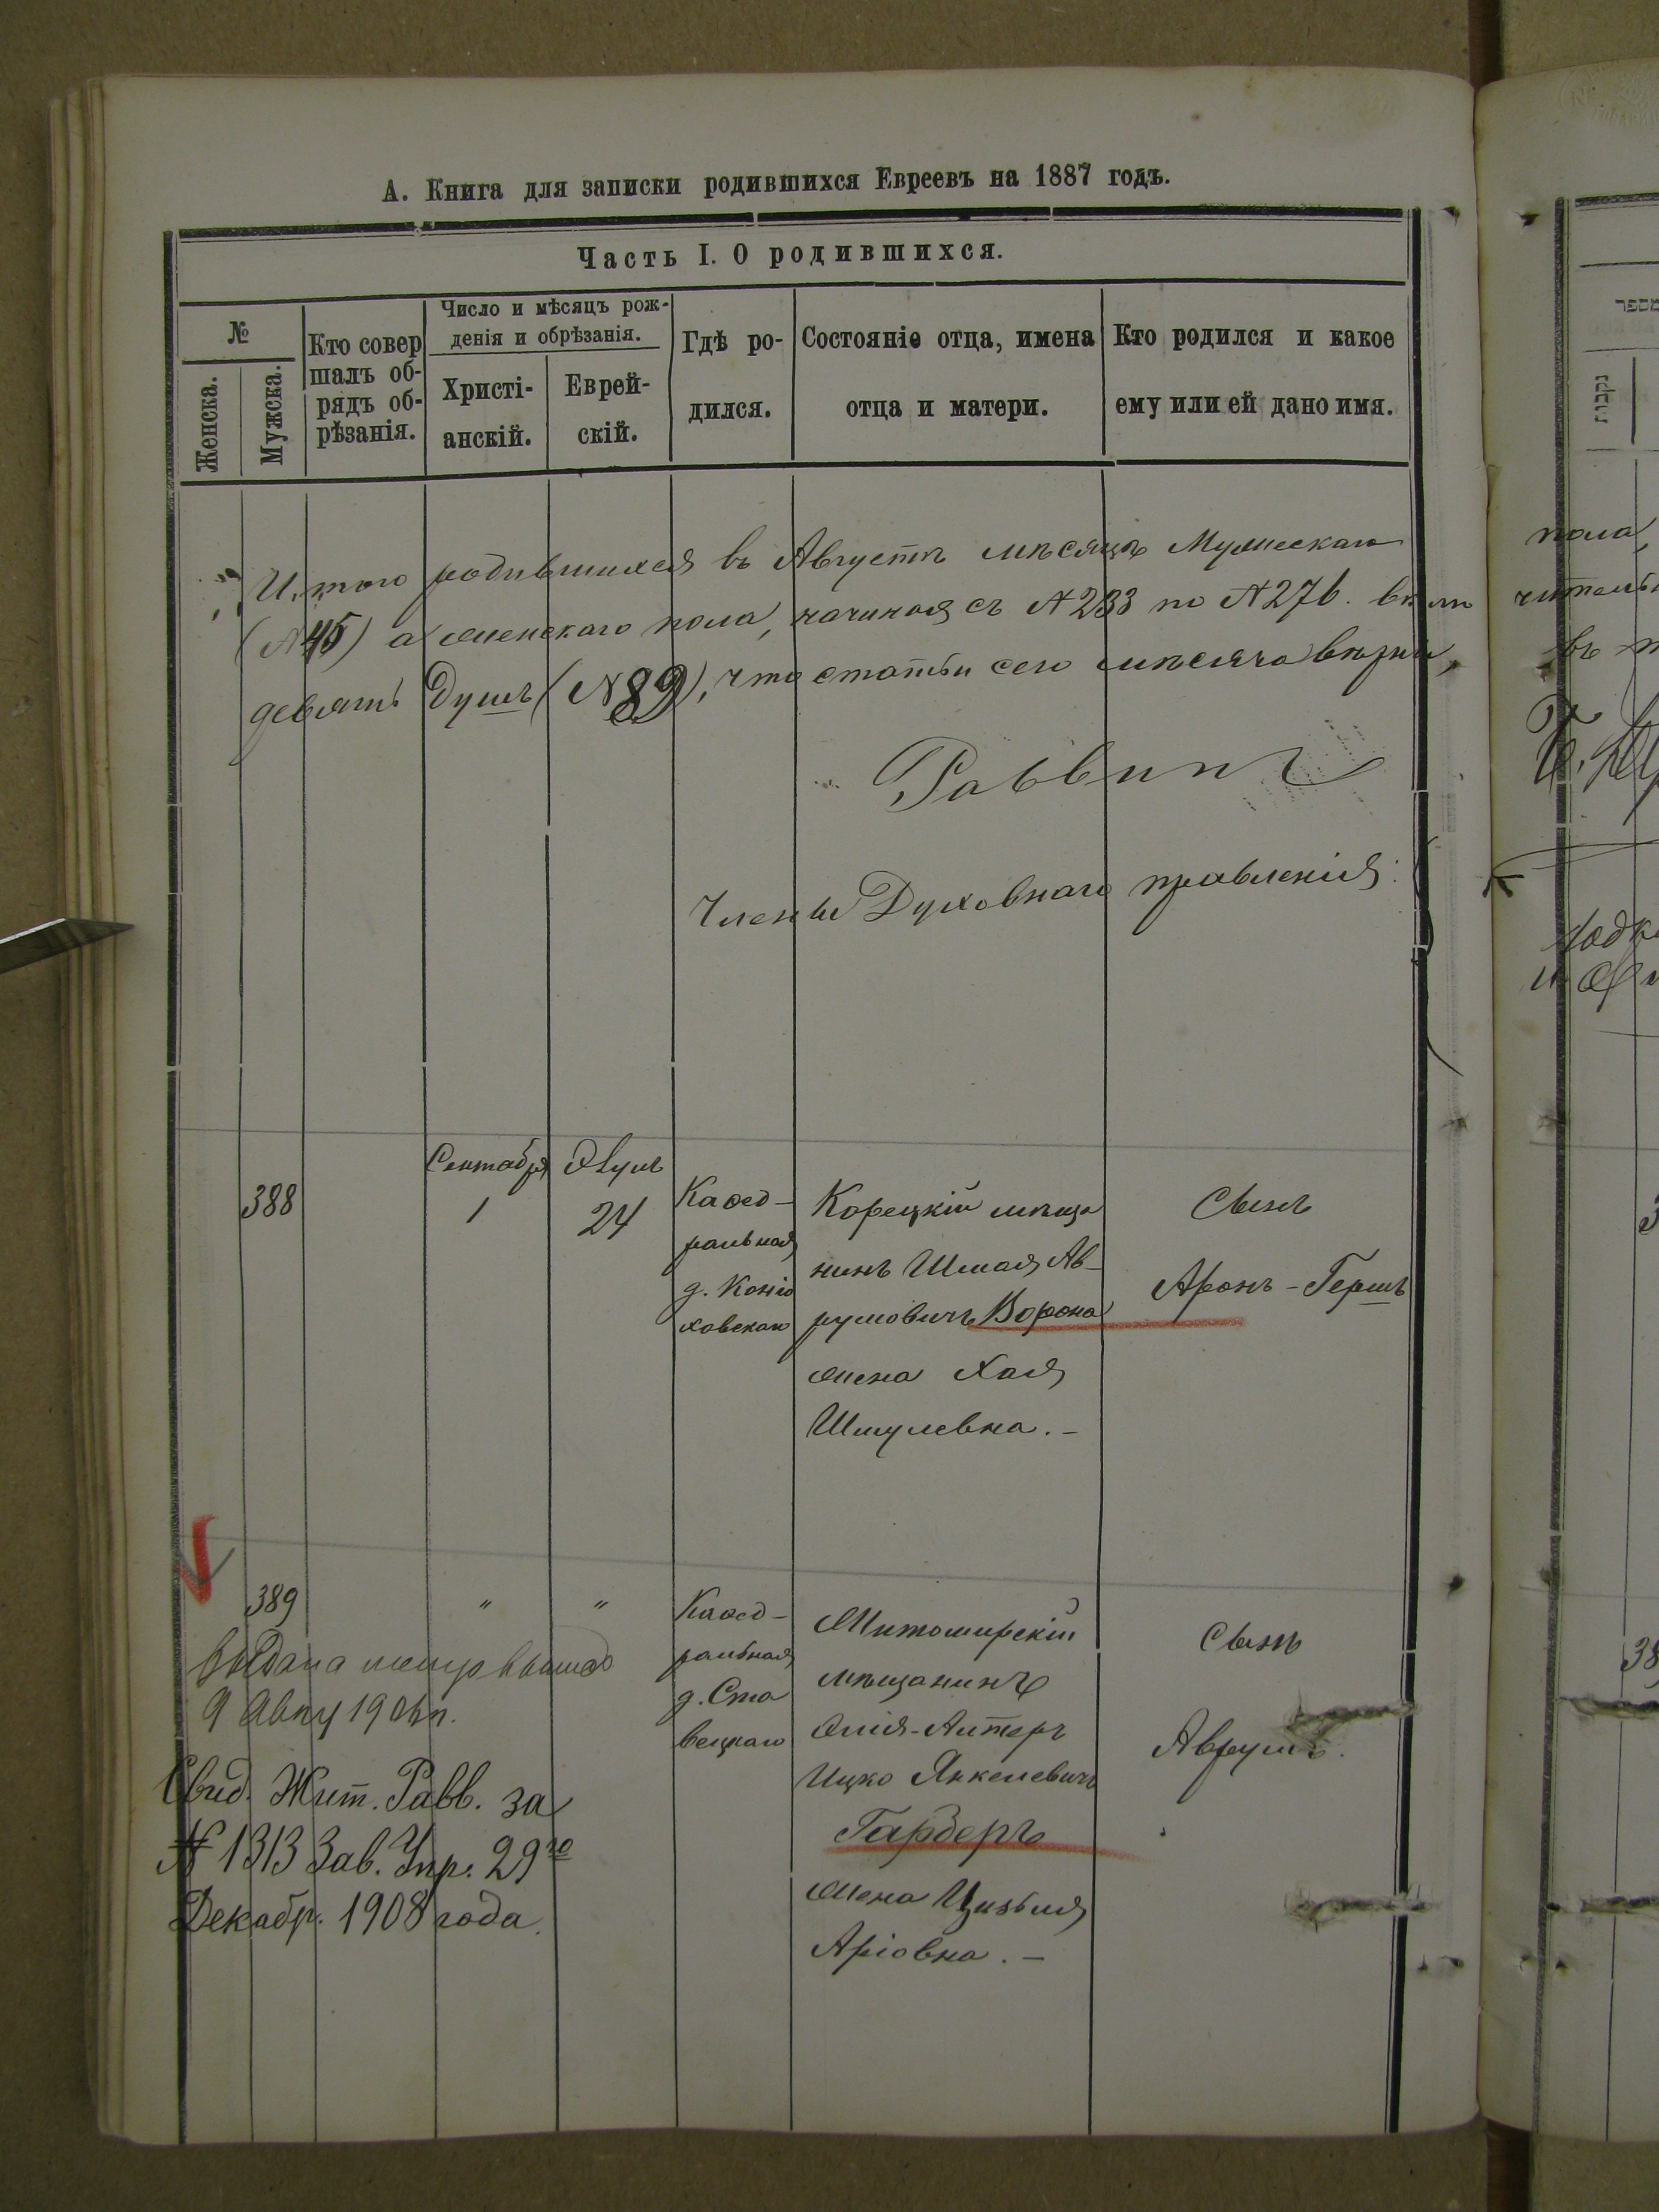 А. Книга для записки родившихся Евреевъ на 1887 годъ.
Часть I. О родившихся.
№
Женска.
Мужска.
Кто совер
шалъ об-
рядъ об-
рѣзанія.
Число и мѣсяцъ рож-
денія и обрѣзанія.
Христі-
анскій.
Еврей-
скій.
Гдѣ ро-
дился.
Состояніе отца, имена
отца и матери.
Кто родился и какое
ему или ей дано имя.
Итого родившихся въ Августѣ мѣсяцѣ Мужескаго
(№ 45) а женскаго пола, начиная съ № 233 по № 276.
девять Душъ (№ 89), что статьи сего мѣсяца
Раввинъ
Члены Духовнаго правленія:
388
Сентября
1
Элулъ
24
Каѳед-
ральная
д. Коню
ховскаго
Корецкій мѣща
нинъ Шмая Ав-
румовичъ Ворона
жена Хая
Шмулевна. -
Сынъ
Аронъ - Гершъ
389
"
"
Каѳед-
ральная
д. Ста
вецкаго
Житомирскій
мѣщанинъ
Элія-Алтеръ
Ицко Янкелевичъ
Гарберъ
жена Цизья
Аріовна. -
Сынъ
Аврумъ.
Выдана
9
Свид. Жит. Равв. за
№ 1313 Зав. Упр. 29го
Декабр. 1908 года.
מספר
נקבות
пола,
въ